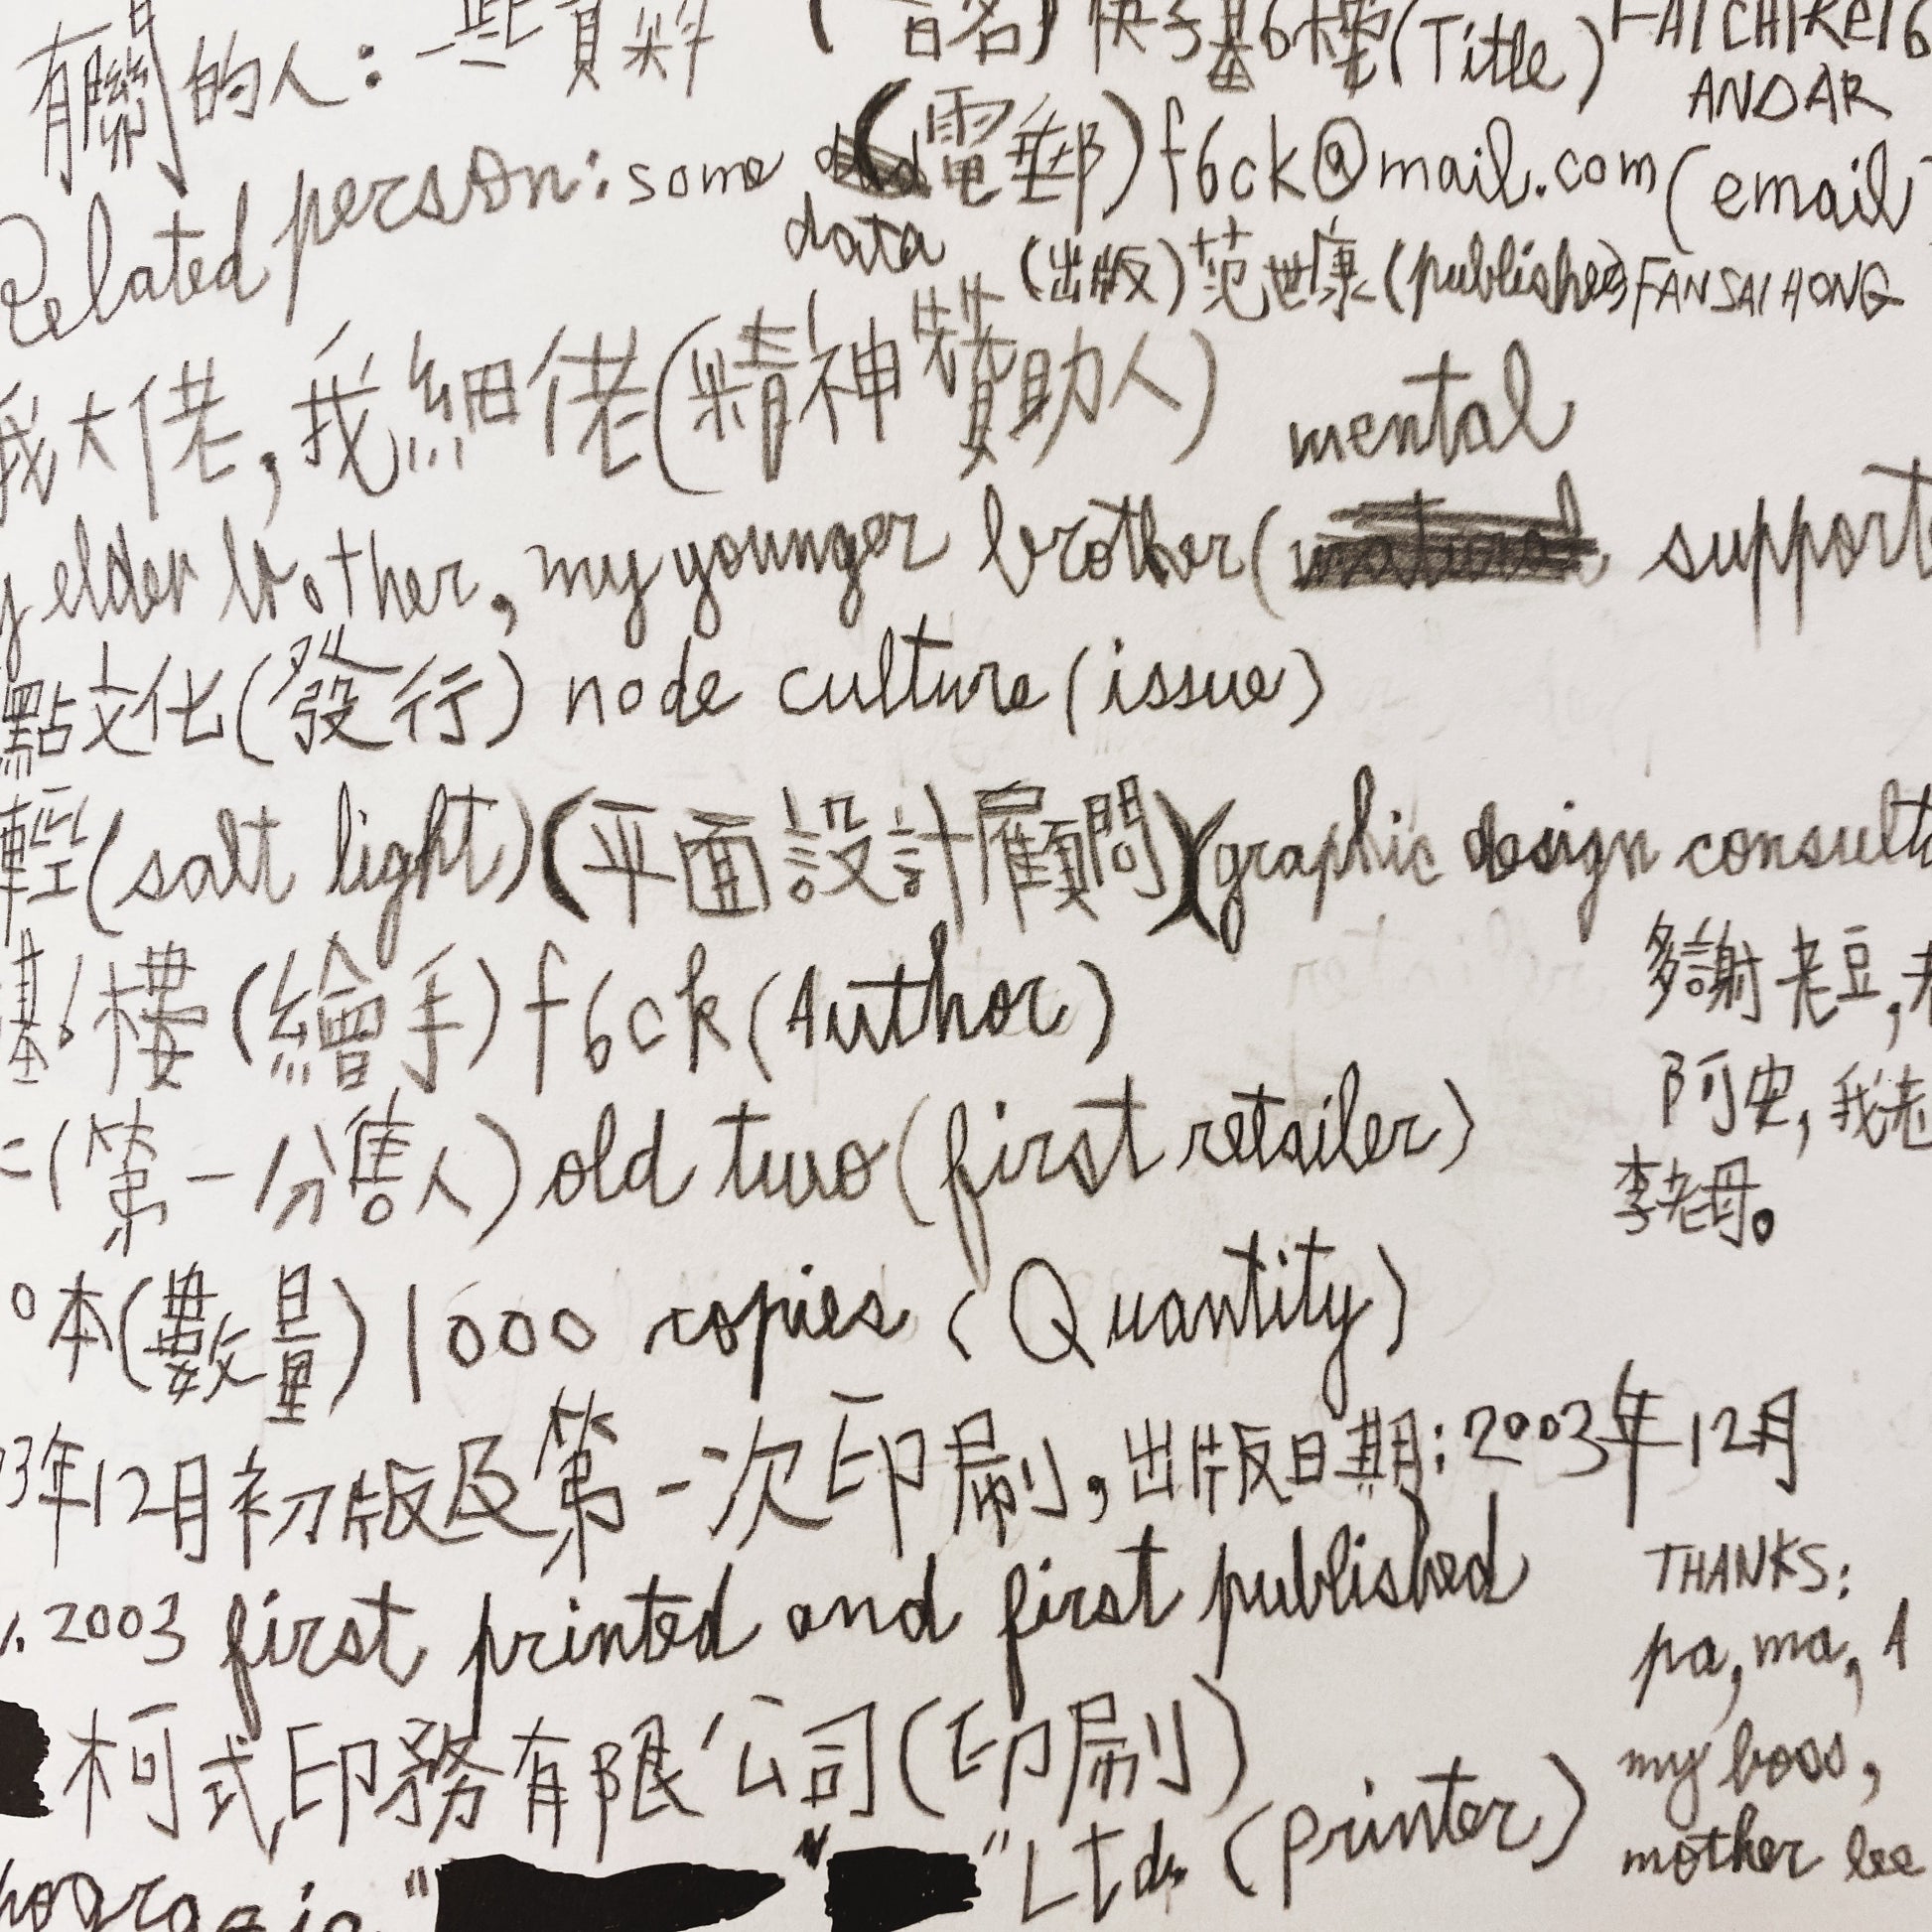 有關的人：一些資料 (書名) 快子基6樓 (Title) FAICHIKEI6
ANDAR
Related person: some (電郵) f6ck@mail.com (email)
data (出版) 范世康 (publisher) FANSAIHONG
我大佬, 我細佬 (精神贊助人) mental
elder brother, my younger brother ( support
點文化 (發行) node culture (issue)
輕 (salt light) (平面設計顧問) (graphic design consult
基6樓 (繪手) f6ck (Author)
多謝老豆,
阿安, 我老
李老母。
二 (第一分售人) old two (first retailer)
0本 (數量) 1000 copies (Quantity)
3年12月初版及第一次印刷, 出版日期: 2003年12月
. 2003 first printed and first published
THANKS:
pa, ma, A
my boss,
mother lee
柯式印務有限公司 (印刷)
" " " Ltd. (printer)